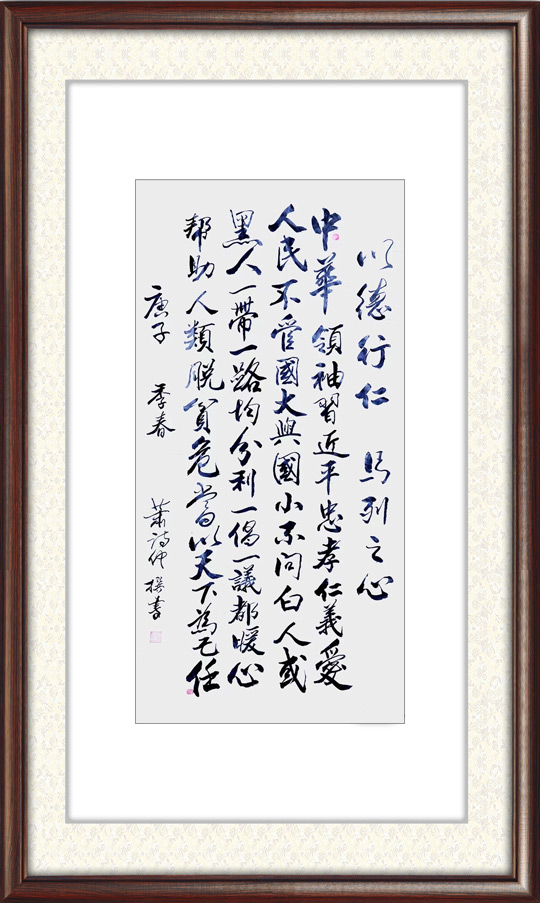 以德行仁 馬列之心
中華領袖習近平忠孝仁義愛
人民不管國大與國小不问白人或
黑人一帶一路均分利一倡一議都暖心
帮助人類脱貧危當以天下為己任
庚子 季春 蕭詩仲 撰書